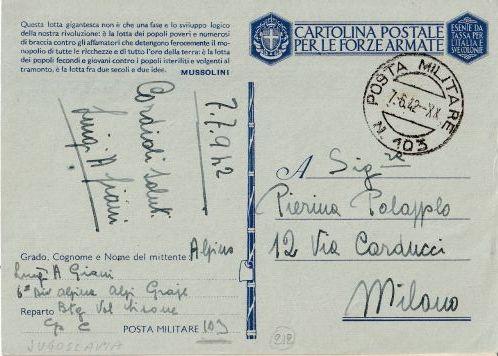 Questa lotta gigantesca non è che una fase e lo sviluppo logico
della nostra rivoluzione: è la lotta dei popoli poveri e numerosi
di braccia contro gli affamatori che detengono ferocemente il mo-
nopolio di tutte le ricchezze e di tutto l'oro della terra: è la lotta
dei popoli fecondi e giovani contro i popoli isteriliti e volgenti al
tramonto, è la lotta fra due secoli e due idee.
MUSSOLINI
CARTOLINA POSTALE
PER LE FORZE ARMATE
ESENTE DA
TASSA PER
L'ITALIA E
SUE COLONIE
POSTA MILITARE
7.6.42-XX
N. 103
7.7.942
Cordiali saluti
Luigi A Giani
A Sig.ra
Pierina
12 Via Carducci
Milano
Grado, Cognome e Nome del mittente: Alpino
Luigi A Giani
6ª Div alpina Alpi Graje
Reparto Btg Val
Cp C
POSTA MILITARE 103
JUGOSLAVIA
212